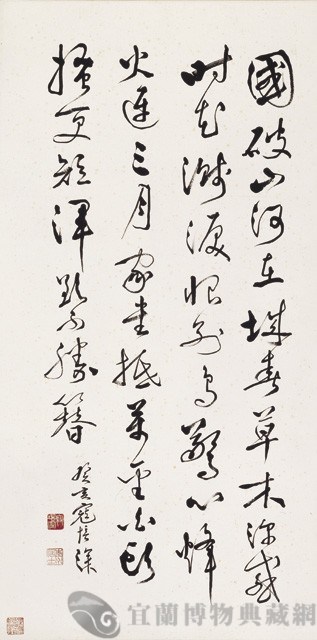 國破山河在城春草木深感
時花濺淚恨別鳥驚心烽
火連三月家書抵萬金白頭
搔更短渾欲不勝簪
癸亥寇培深
宜蘭博物典藏網